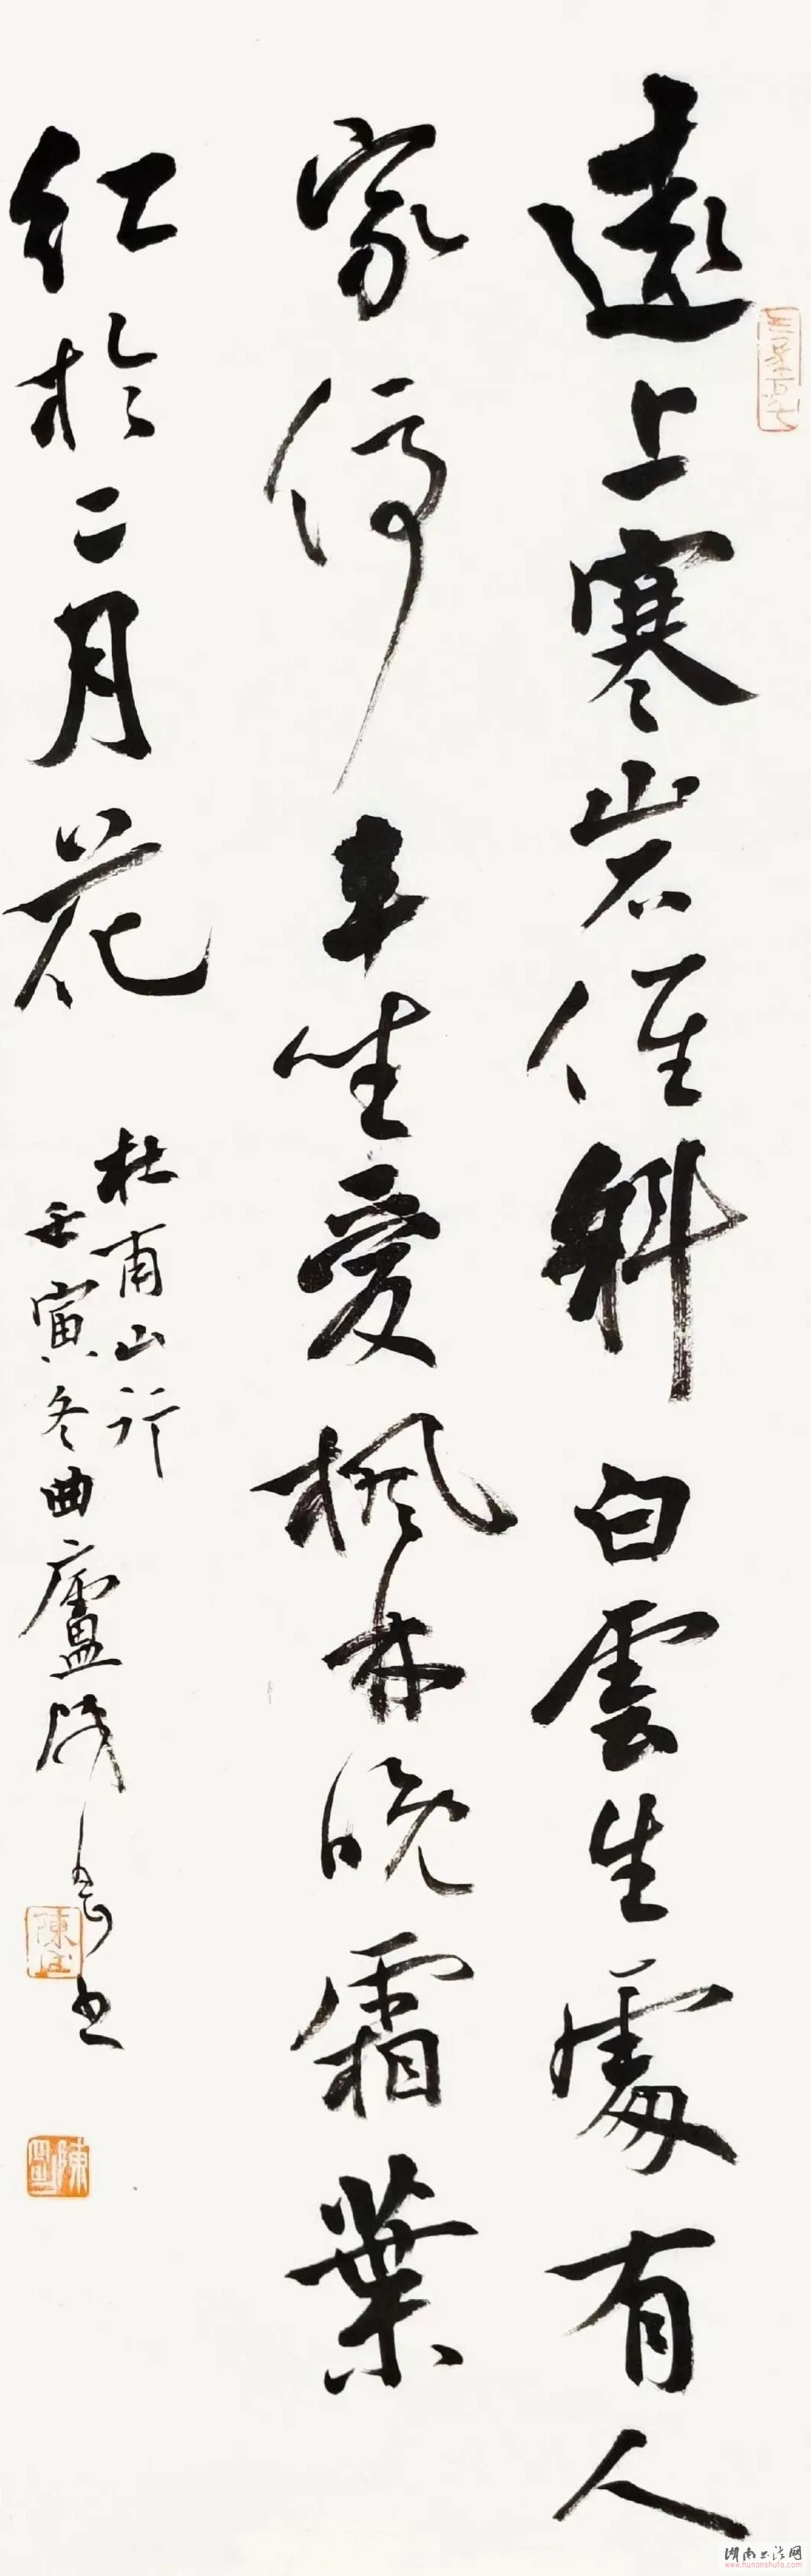 遠上寒山石径斜白雲生處有人
家停車坐愛楓林晚霜葉
红於二月花
杜甫山行
壬寅冬曲廬
湖南书法网
www.hunanshufa.com